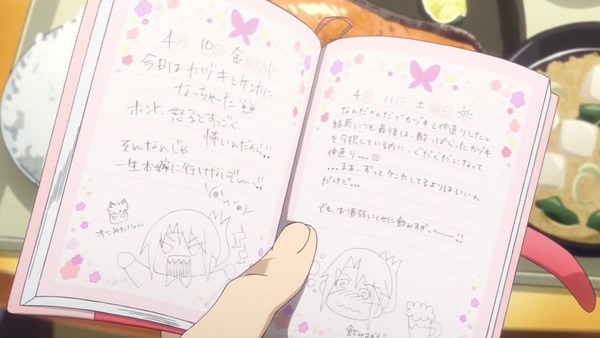 4月 10日 金曜日
今日はカヅキとケンカに
なっちゃった
ホント、怒るとすごく
怖いんだから!!
そんなんじゃ
一生お嫁に行けないぞ〜!!
4月 11日 土曜日
なんだかんだでカヅキと仲直りしました。
結局いつも最後は、酔っぱらったカヅキ
を介抱している内に、ぐだぐだになって
仲直り...
...まぁ、ずっとケンカしてるよりはいいん
だけど...
でも、お酒弱いくせに飲みすぎっ〜〜!!